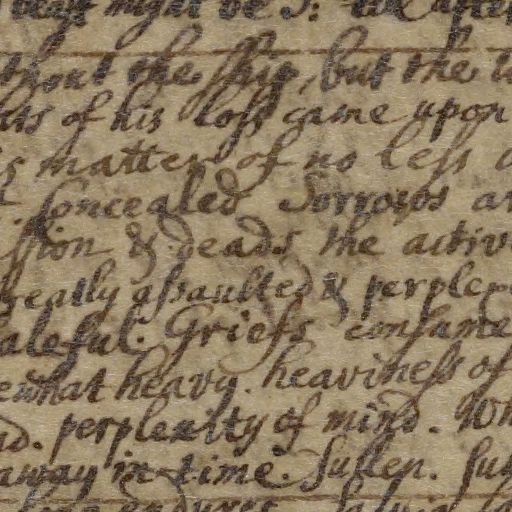 might be
thout the ship, but the
hts of his loss came upon
is matter of no less
Concealed Sorrows
ssion & deads the activ
greatly assaulted & perplex
aleful. Griefs consume
ewhat heavy. heaviness of
nd. perplexity of mind. Wh
away in time. sullen. sul